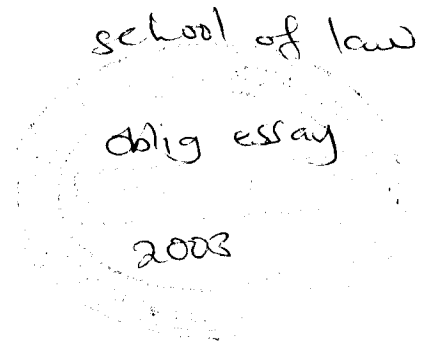 school of law
oblig essay
2003